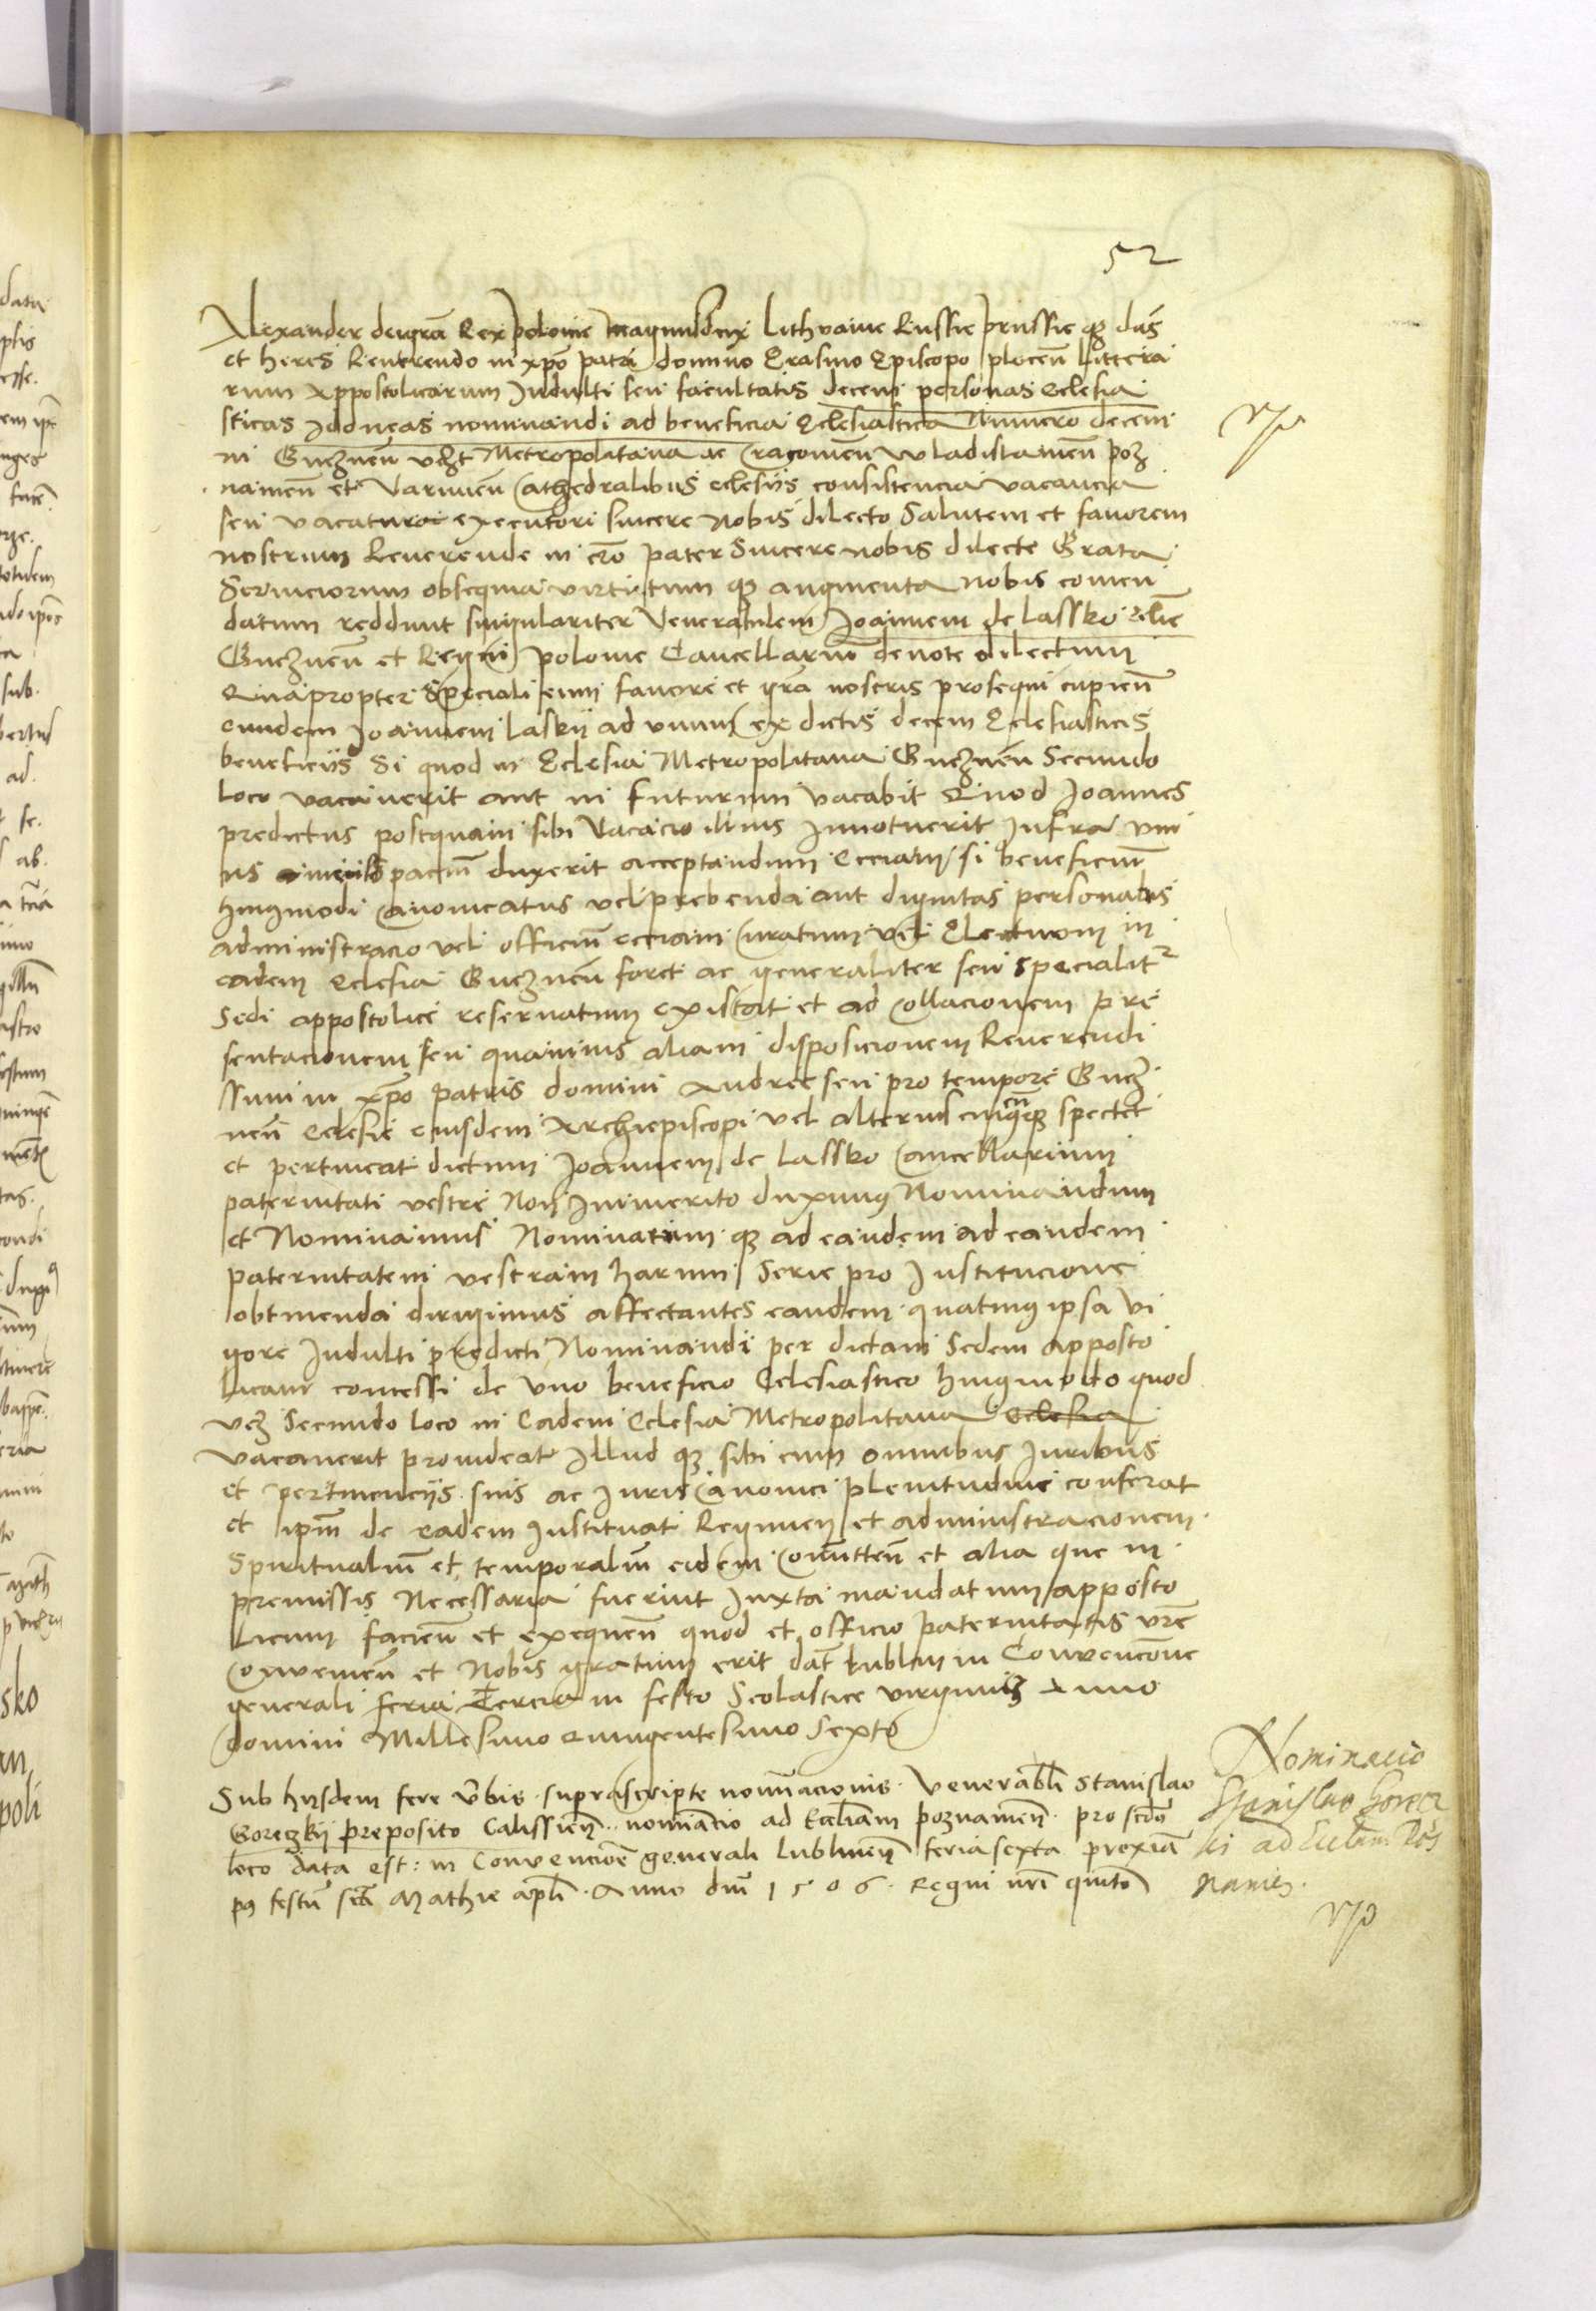 52
Alexander dei gra Rex polonie magnus dux Lithvanie Russie prussie qz dns
et heres Reuerendo in xpo patri domino Erasmo Episcopo plocen Littera
rum Appostolicarum Indulti seu facultatis decem personas eclesia
sticas Idoneas nominandi ad beneficia Eclesiastica Numero decem
in Gneznen vczt Metropolitana ac Cracouien Wladislauien poz
namen et Varmien Cathedralibus eclesijs consistencia vacancia
seu vacatura executori sincere nobis dilecto Salutem et fauorem
nostrum Reuerende in cro pater Sincere nobis dilecte Grata
Seruiciorum obsequia virtutum qz augmenta nobis comen
datum reddunt singulariter Venerabilem Joannem de Lassko
Gneznen et Regni polonie Cancellarium deuote dilectum
Quapropter Speciali eum fauore et gra nostris prosequi cupien
eundem Joannem Laskij ad vnum ex dictis decem Eclesiasticis
beneficijs Si quod in Eclesia Metropolitana Gneznen Secundo
loco vacauerit aut in futurum vacabit Quod Joannes
predictus postquam sibi Vacacio illius Innotuerit Infra vni
us mensis spacium duxerit acceptandum Ecciam si beneficium
huiusmodi Canonicatus vel prebenda aut dignitas personatus
administracio vel officium ecciam Curatum vel Electiuom in
eadem Eclesia Gneznen foret ac generaliter seu specialit
Sedi appostolice reseruatum existat et ad Collacionem pre
sentacionem seu quamuis aliam disposicionem Reuerendi
ssimi in xpo patris domini Andree seu pro tempore Gnez
nen Eclesie eiusdem Archiepiscopi vel alterius cuiuscunqz spectet
et pertineat dictum Joannem de Lassko Cancellarium
paternitati vestre Non Inmerito duximus Nominandum
et Nominamus Nominatum qz ad eandem ad eandem
paternitatem vestram harum Serie pro Institucione
obtinenda dirigimus affectantes eandem quatinus ipsa vi
gore Indulti predicti Nominandi per dictam Sedem apposto
licam concessi de vno beneficio Eclesiastico huiusmodo quod
vcz Secundo loco in Eadem Eclesia Metropolitana Eclesia
vacauerit prouideat Illud qz sibi cum omnibus Iuribus
et pertinencijs suis ac Iuris Canonici plenitudine conferat
et ipm de eadem Instituat Regimen et administracionem
Spiritualium et temporalium eidem Comitten et alia que in
premissis Necessaria fuerint Iuxta mandatum apposto
licum facien et exequen quod et officio paternitatis vre
Conuenien et Nobis gratum erit dat Lublin in Conuencione
generali feria Tercia in festo Scolastice virginis Anno
domini Millesimo Quingentesimo Sexto
Sub hijsdem fere verbis suprascripte nominacionis Venerabli Stanislao
Goreczkij preposito Calissien nominacio ad Eccliam poznamen pro scdo
loco data est: in Conuencione generali Lublinen feria sexta proxima
ps festum scti Mathie apli Anno dni 1506 Regni nri quinto
Nominacio
Stanislao Gorecz
ki ad Eccliam Pos
namien.